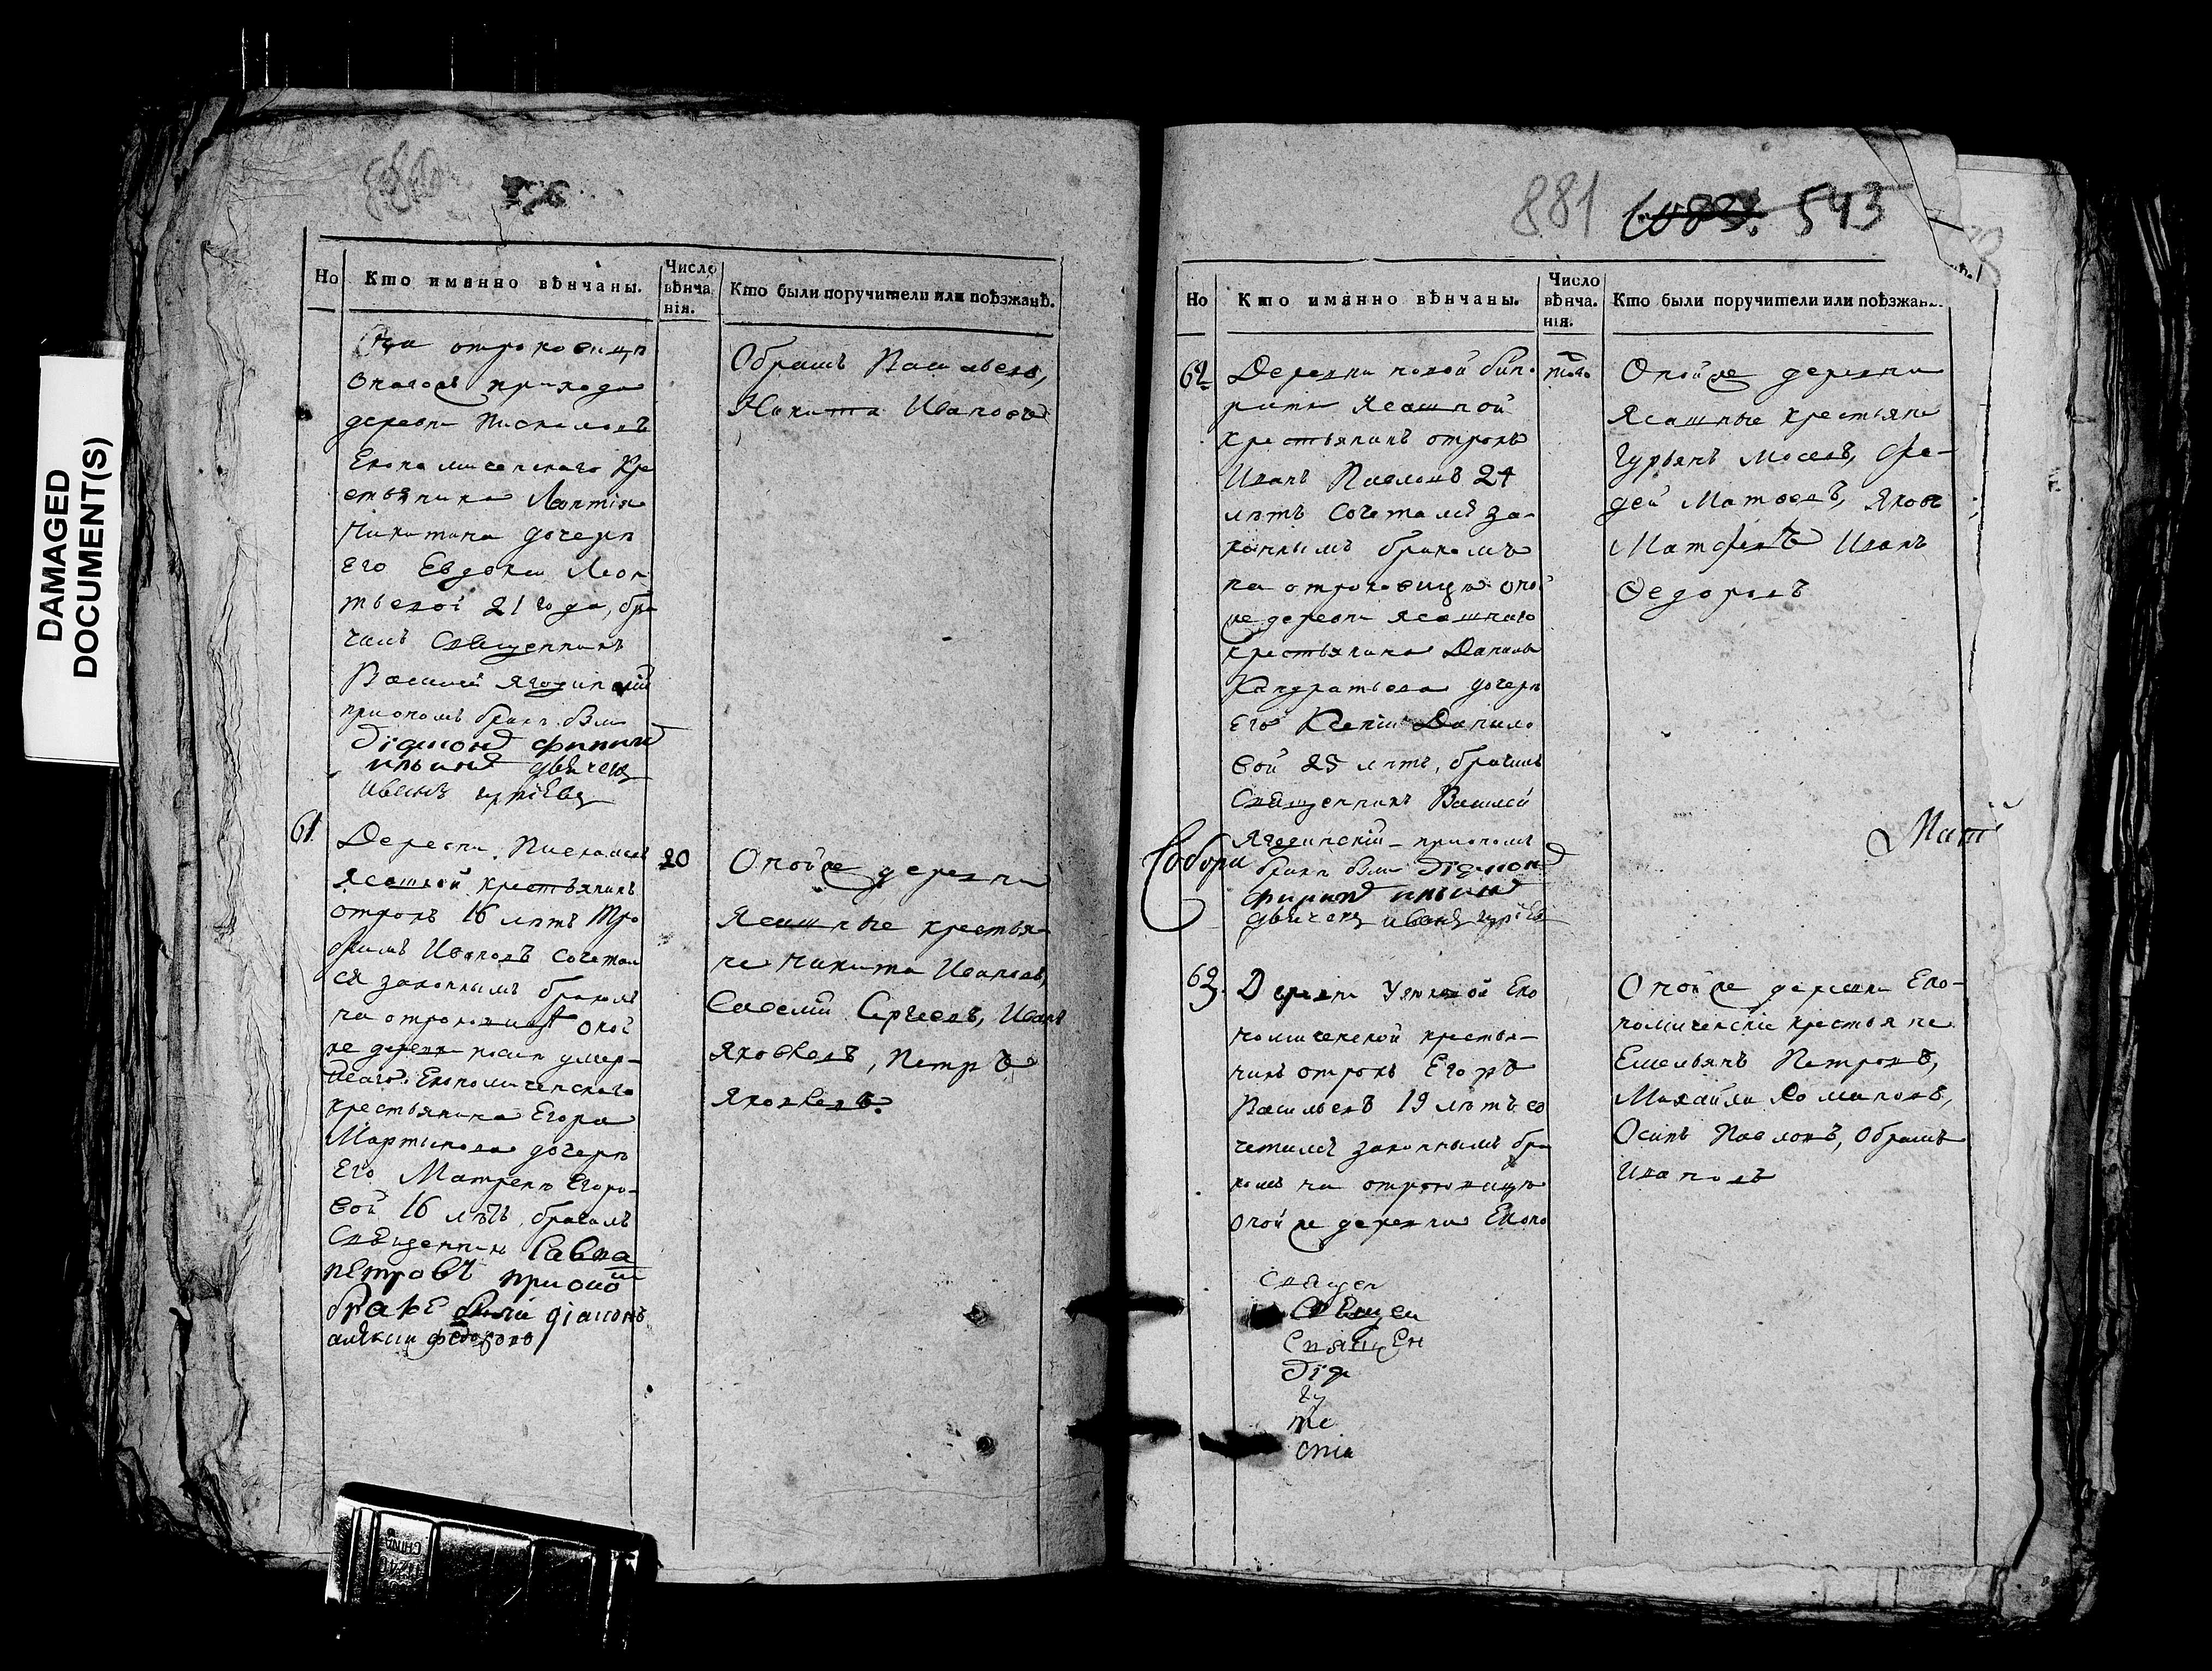 DAMAGED
DOCUMENT(S)
Но
Кто имянно вѣнчаны.
Число
вѣнча
нія.
Кто были поручители или поѣзжанѣ.
На отроковицѣ
приходa
деревни
Економическаго Кре
стьянина Леонтія
Никитина дочерѣ
Его Евдокеи Леон
тьевой 21 года, бра
чилъ Священникъ
Василей Ягодинскій
приономъ бракѣ были
діаконъ филипъ
ильинъ дьячекъ
иванъ
Абрамъ Васильевъ,
Никита Ивановъ
61
Деревни
Ясашной крестьянинъ
отрокъ 16 лѣтъ Тро
фимъ Ивановъ сочетал
ся законнымъ бракомъ
на отроковицѣ оной
же деревни после умер-
шаго Економическаго
крестьянина Егора
Мартынова дочерѣ
Его Матренѣ Егоро-
вой 16 лѣтъ, брачилъ
Священникъ Савва
петровъ приономъ
браке были діаконъ
алѣксѣи федоровъ
20
Оной же деревни
Ясашные крестья-
не Никита Ивановъ,
Савелий Сергеевъ, Иванъ
Яковлевъ, Петръ
Яковлевъ.
881 543
Но
Кто имянно вѣнчаны.
Число
вѣнча.
нія.
Кто были поручители или поѣзжан
62
Деревни новой
Ясашной
крестьянинъ отрокъ
Иванъ Павловъ 24
лѣтъ Сочетался за-
коннымъ бракомъ
на отроковицѣ оной
же деревни ясашнаго
крестьянина Данилы
Кандратьева дочерѣ
Его Ксеніи Данило
вой 25 лѣтъ, брачилъ
Священникъ Василей
Ягодинскій приономъ
бракѣ были діаконъ
филипъ ильинъ
дьячекъ иванъ
того
Оной же деревни
Ясашные крестьяне
Гурьянъ Мосевъ, Фа-
дей Матвеевъ, Яковъ
Матфеевъ Иванъ
Ѳедоровъ
Собори
Мат
63.
Деревни Еко
номической крестья-
нинъ отрокъ Егоръ
Васильевъ 19 лѣтъ со
четался законнымъ бра
комъ на отроковицѣ
оной же деревни Еконо
Оной же деревни Еко-
номическіе крестьяне
Емельянъ Петровъ,
Михайла Романовъ,
Осипъ Павловъ, Абрамъ
Ивановъ
Священ
Священ
Священ
Дія
гу
те
сти